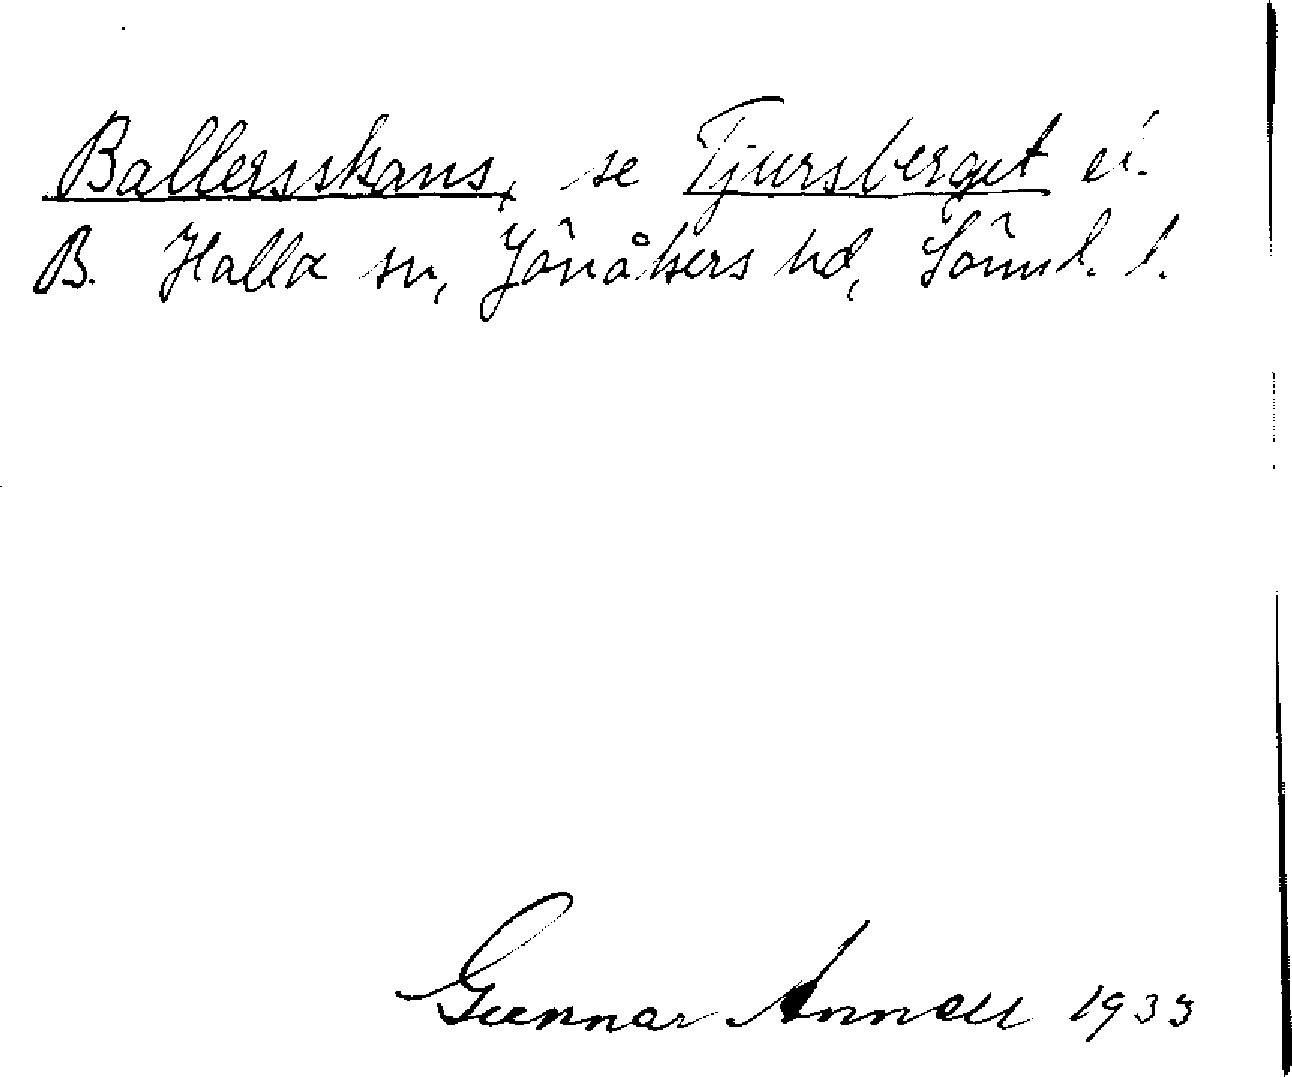 Ballersskans, se Tjursberget el.
B. Halla sn, Jönåkers hd, Sörml. l.
Gunnar Annell 1933